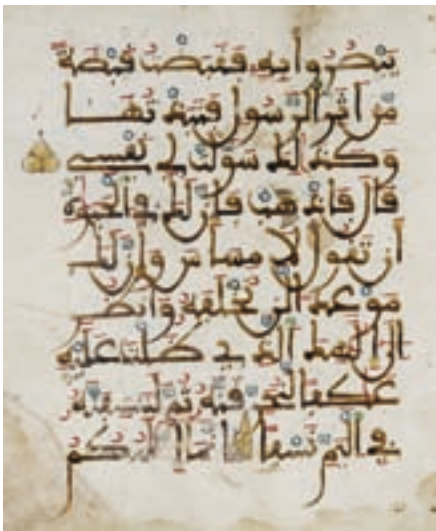 يَبْصُرُوا بِهِ فَقَبَضْتُ قَبْضَةً
مِّنْ أَثَرِ الرَّسُولِ فَنَبَذْتُهَا
وَكَذَلِكَ سَوَّلَتْ لِي نَفْسِي
قَالَ فَاذْهَبْ فَإِنَّ لَكَ فِي الْحَيَوٰةِ
أَن تَقُولَ لَا مِسَاسَ وَإِنَّ لَكَ
مَوْعِدًا لَّن تُخْلَفَهُ وَانظُرْ
إِلَى إِلَهِكَ الَّذِي ظَلْتَ عَلَيْهِ
عَكِفًا لَّنُحَرِّقَنَّهُ ثُمَّ لَنَنسِفَنَّهُ
فِي الْيَمِّ نَسْفًا إِنَّمَا إِلَهُكُمُ